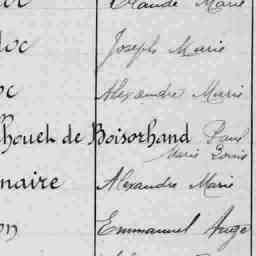 Claude Marie
loc Joseph Marie
oc Alexandre Marie
houel de Boisorhand Paul
Marie Louis
naire Alexandre Marie
on Emmanuel Ange